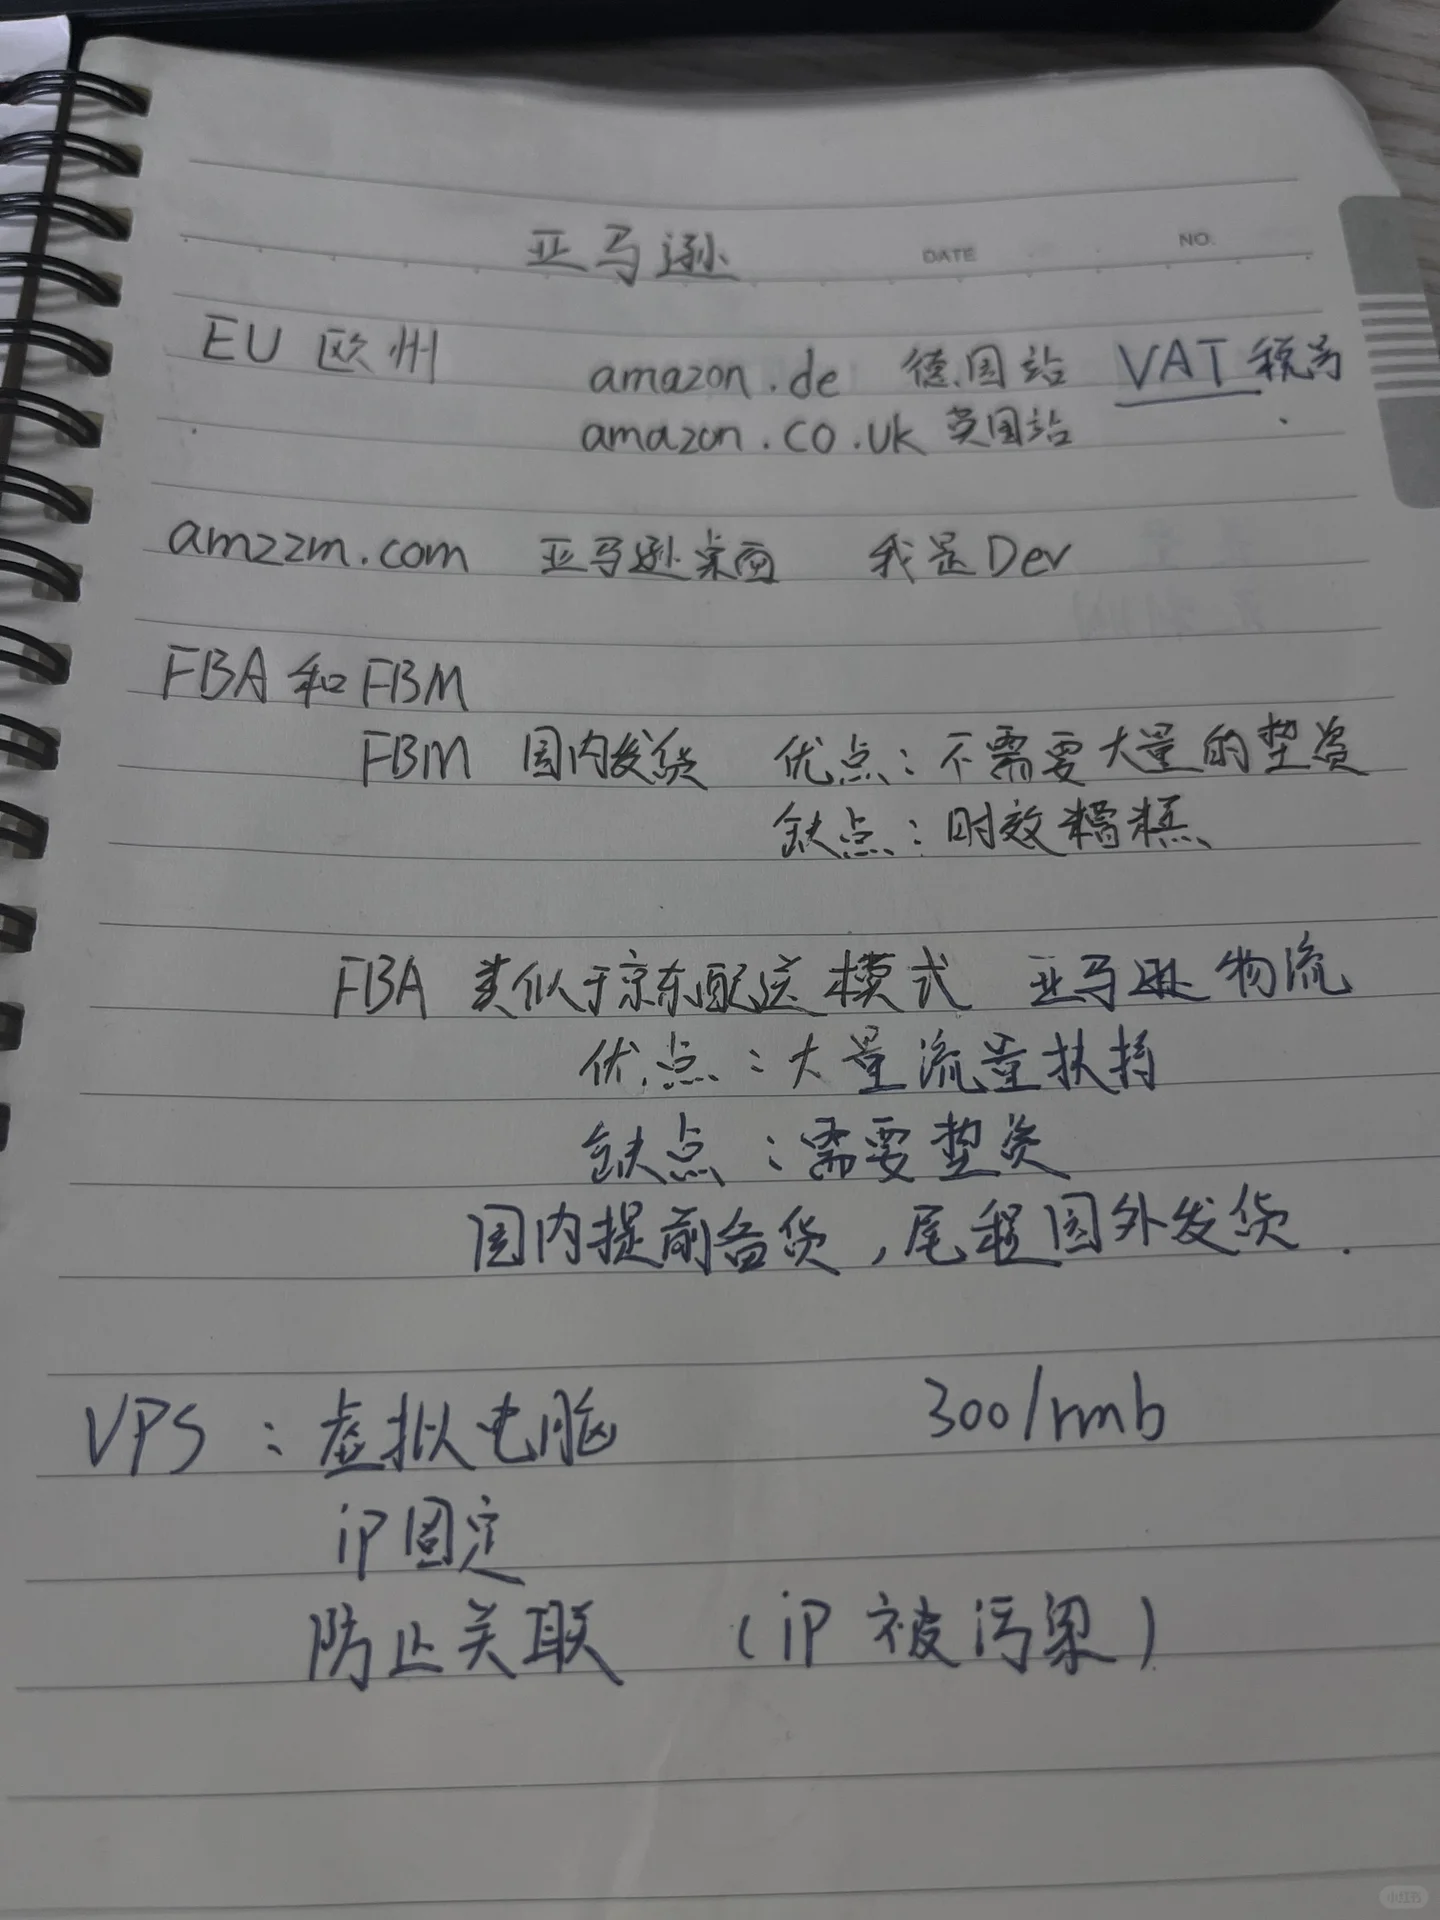 亚马逊
DATE NO.
EU 欧州 amazon.de 德国站 VAT 税号
amazon.co.uk 英国站
amzzm.com 亚马逊桌面 我是Dev
FBA 和 FBM
FBM 国内发货 优点：不需要大量的垫资
缺点：时效糟糕
FBA 类似于京东配送模式 亚马逊物流
优点：大量流量扶持
缺点：需要垫资
国内提前备货，尾程国外发货.
VPS：虚拟电脑 300/rmb
ip固定
防止关联 （ip 被污染）
小红书